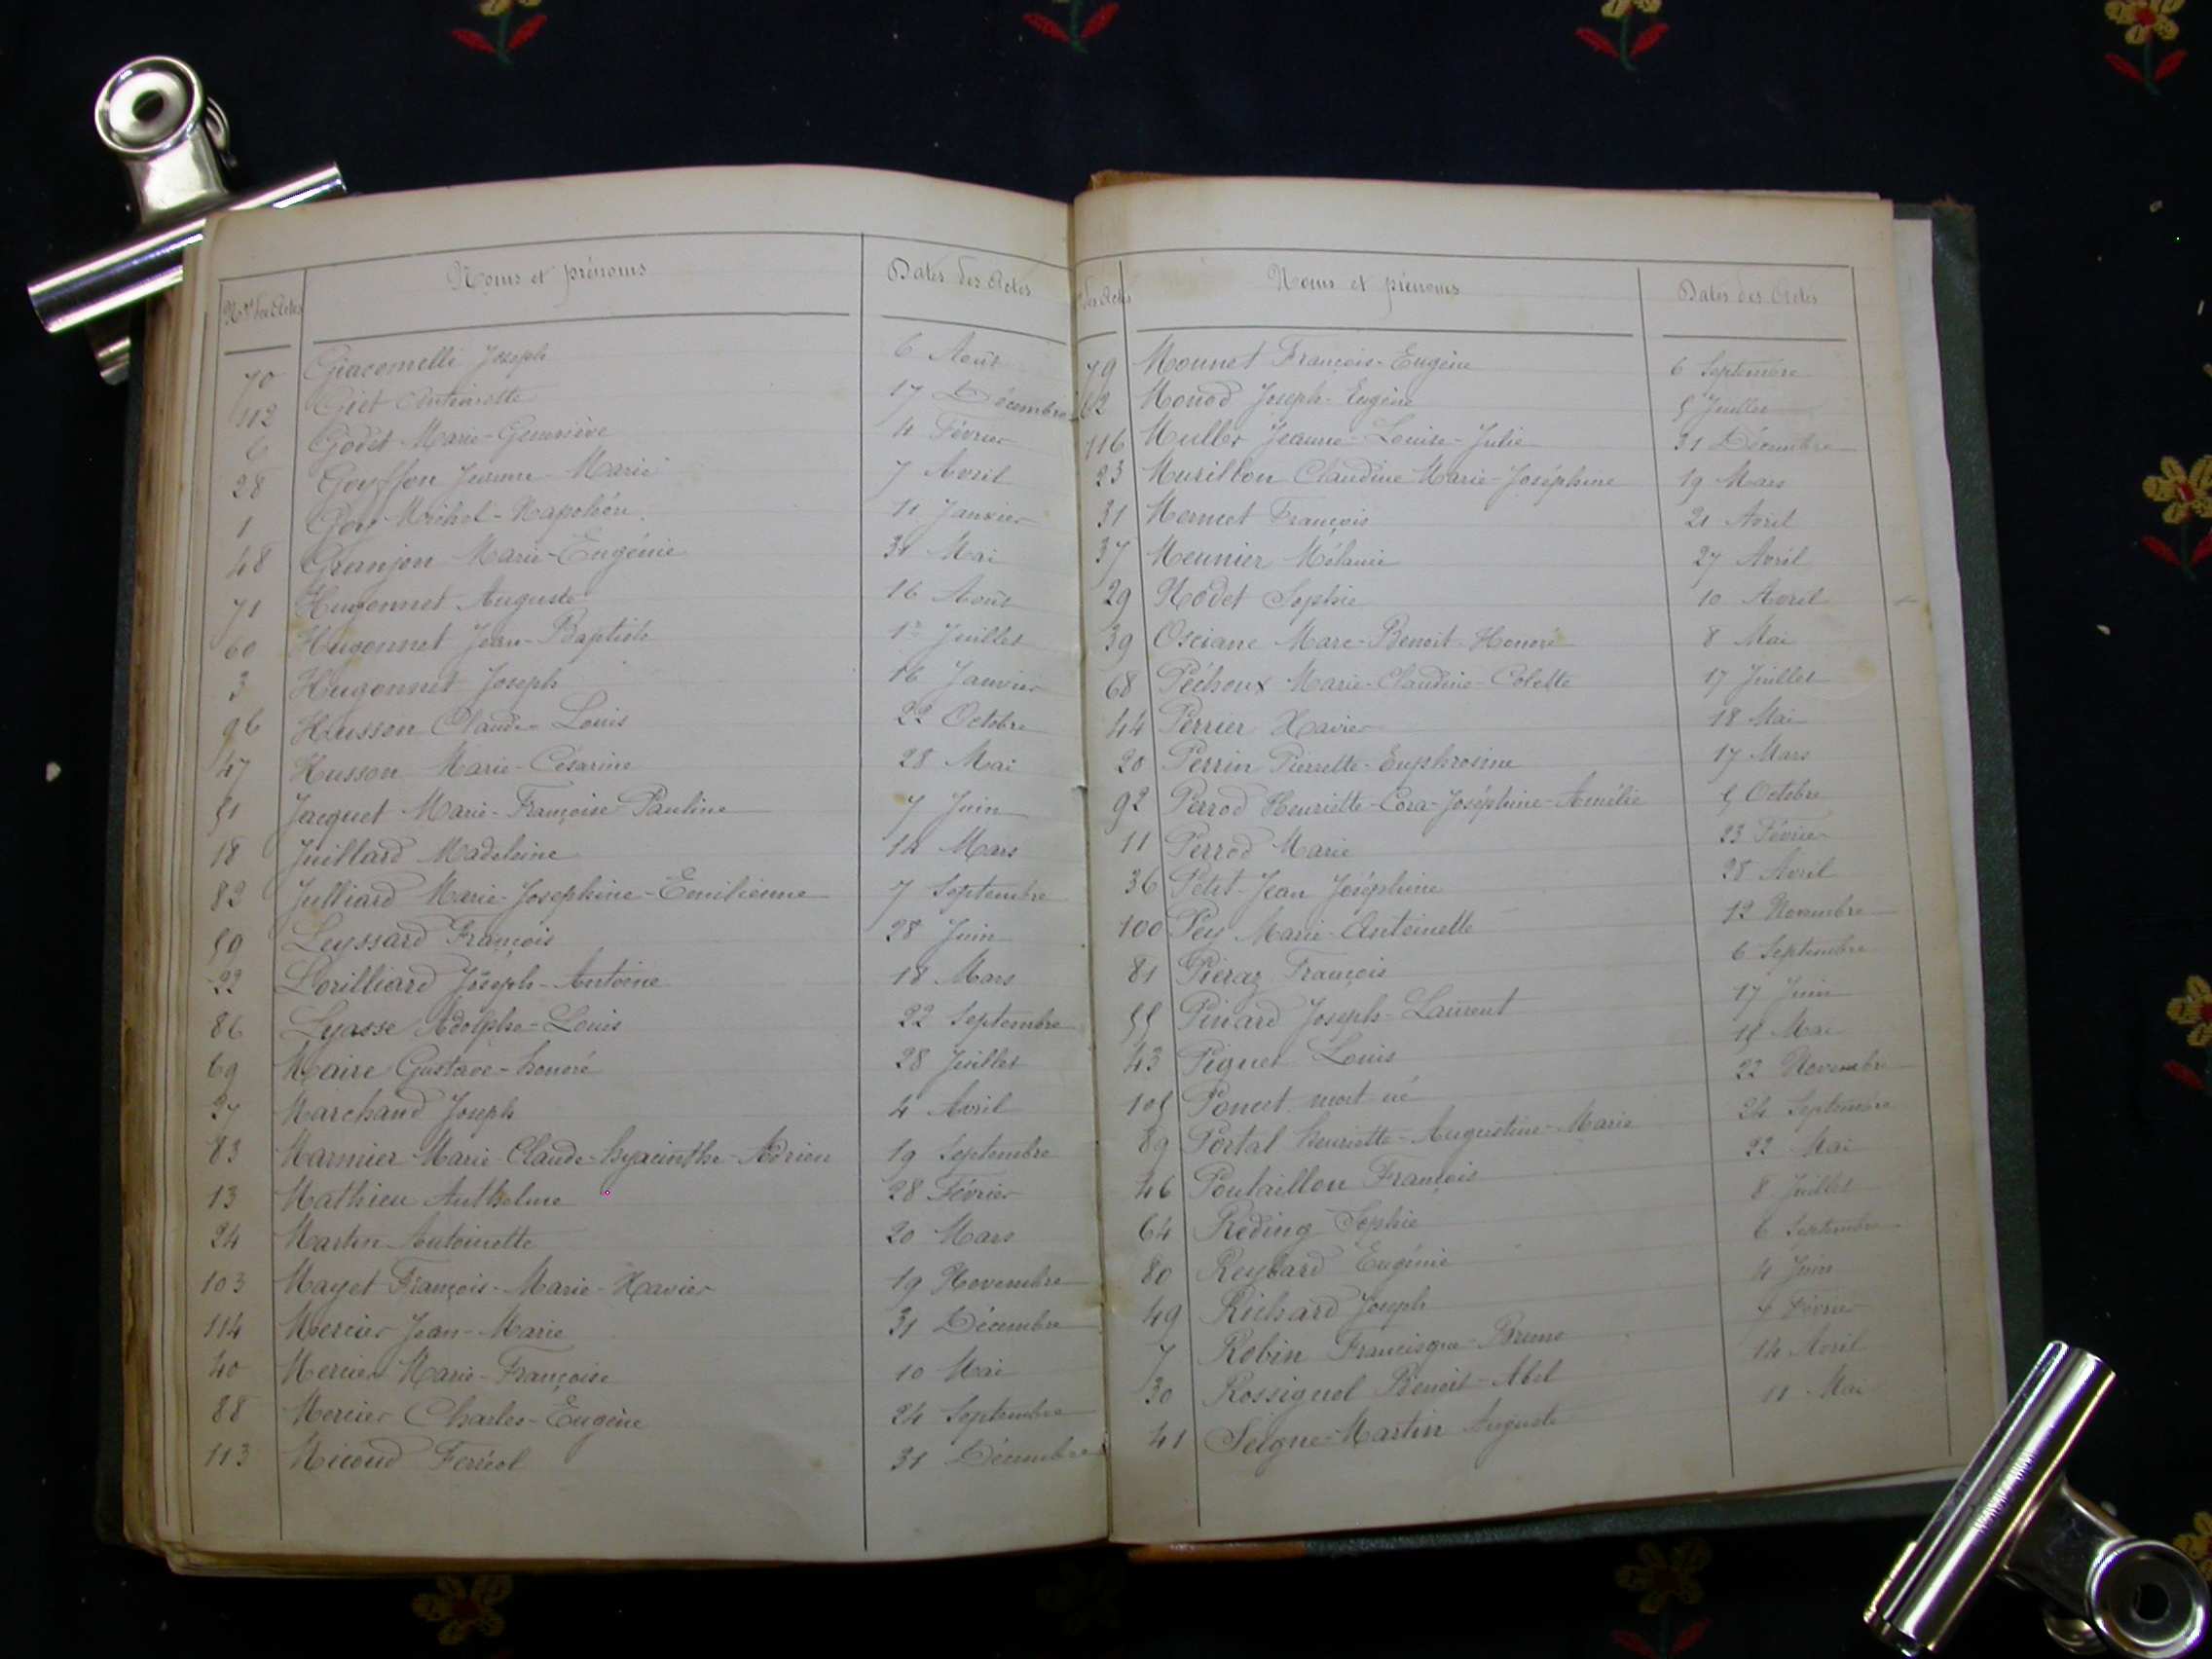 Nos des Actes Noms et prénoms Dates des Actes
70 Giacomelli Joseph 6 Août
112 Giet Antoinette 17 Décembre
6 Godet Marie-Geneviève 4 Février
28 Gouffon Jeanne-Marie 7 Avril
1 Michel-Napoléon 11 Janvier
48 Granjon Marie-Eugénie 31 Mai
71 Hugonnet Auguste 16 Août
60 Hugonnet Jean-Baptiste 1er Juillet
3 Hugonnet Joseph 16 Janvier
96 Husson Claude-Louis 22 Octobre
47 Husson Marie-Césarine 28 Mai
51 Jacquet Marie-Françoise Pauline 7 Juin
18 Juillard Madeleine 14 Mars
82 Julliard Marie-Josephine-Emilienne 7 Septembre
59 Leyssard François 28 Juin
22 Lorilliard Joseph-Antoine 18 Mars
86 Lyasse Adolphe-Louis 22 Septembre
69 Maire Gustave-honoré 28 Juillet
27 Marchand Joseph 4 Avril
83 Marmier Marie-Claude-hyacinthe-Adrien 19 Septembre
13 Mathieu Anthelme 28 Février
24 Martin Antoinette 20 Mars
103 Mayet François-Marie-Xavier 19 Novembre
114 Mercier Jean-Marie 31 Décembre
40 Mercier Marie-Françoise 10 Mai
88 Mercier Charles-Eugène 24 Septembre
113 Micoud Ferréol 31 Décembre
des Actes Noms et prénoms Dates des Actes
79 Monnet François-Eugène 6 Septembre
62 Monod Joseph-Eugène 5 Juillet
116 Muller Jeanne-Louise-Julie 31 Décembre
23 Murillon Claudine Marie-Joséphine 19 Mars
31 Mermet François 21 Avril
37 Meunier Mélanie 27 Avril
29 Nodet Sophie 10 Avril
39 Osciane Marc-Benoit-Honoré 8 Mai
68 Péchoux Marie-Claudine-Colette 17 Juillet
44 Perrier Xavier 18 Mai
20 Perrin Pierrette-Euphrosine 17 Mars
92 Perrod Henriette-Cora-Joséphine-Amélie 5 Octobre
11 Perrod Marie 23 Février
36 Petit-Jean Joséphine 28 Avril
100 Pey Marie-Antoinette 12 Novembre
81 Pieraz François 6 Septembre
55 Pinard Joseph-Laurent 17 Juin
43 Piguet Louis 18 Mai
105 Poncet mort-né 22 Novembre
89 Portal henriette-Augustine-Marie 24 Septembre
46 Poutaillon François 22 Mai
64 Reding Sophie 8 Juillet
80 Reybard Eugénie 6 Septembre
49 Richard Joseph 4 Juin
7 Robin Francisque-Bruno Février
30 Rossignol Benoit-Abel 14 Avril
41 Seigne-Martin Auguste 11 Mai